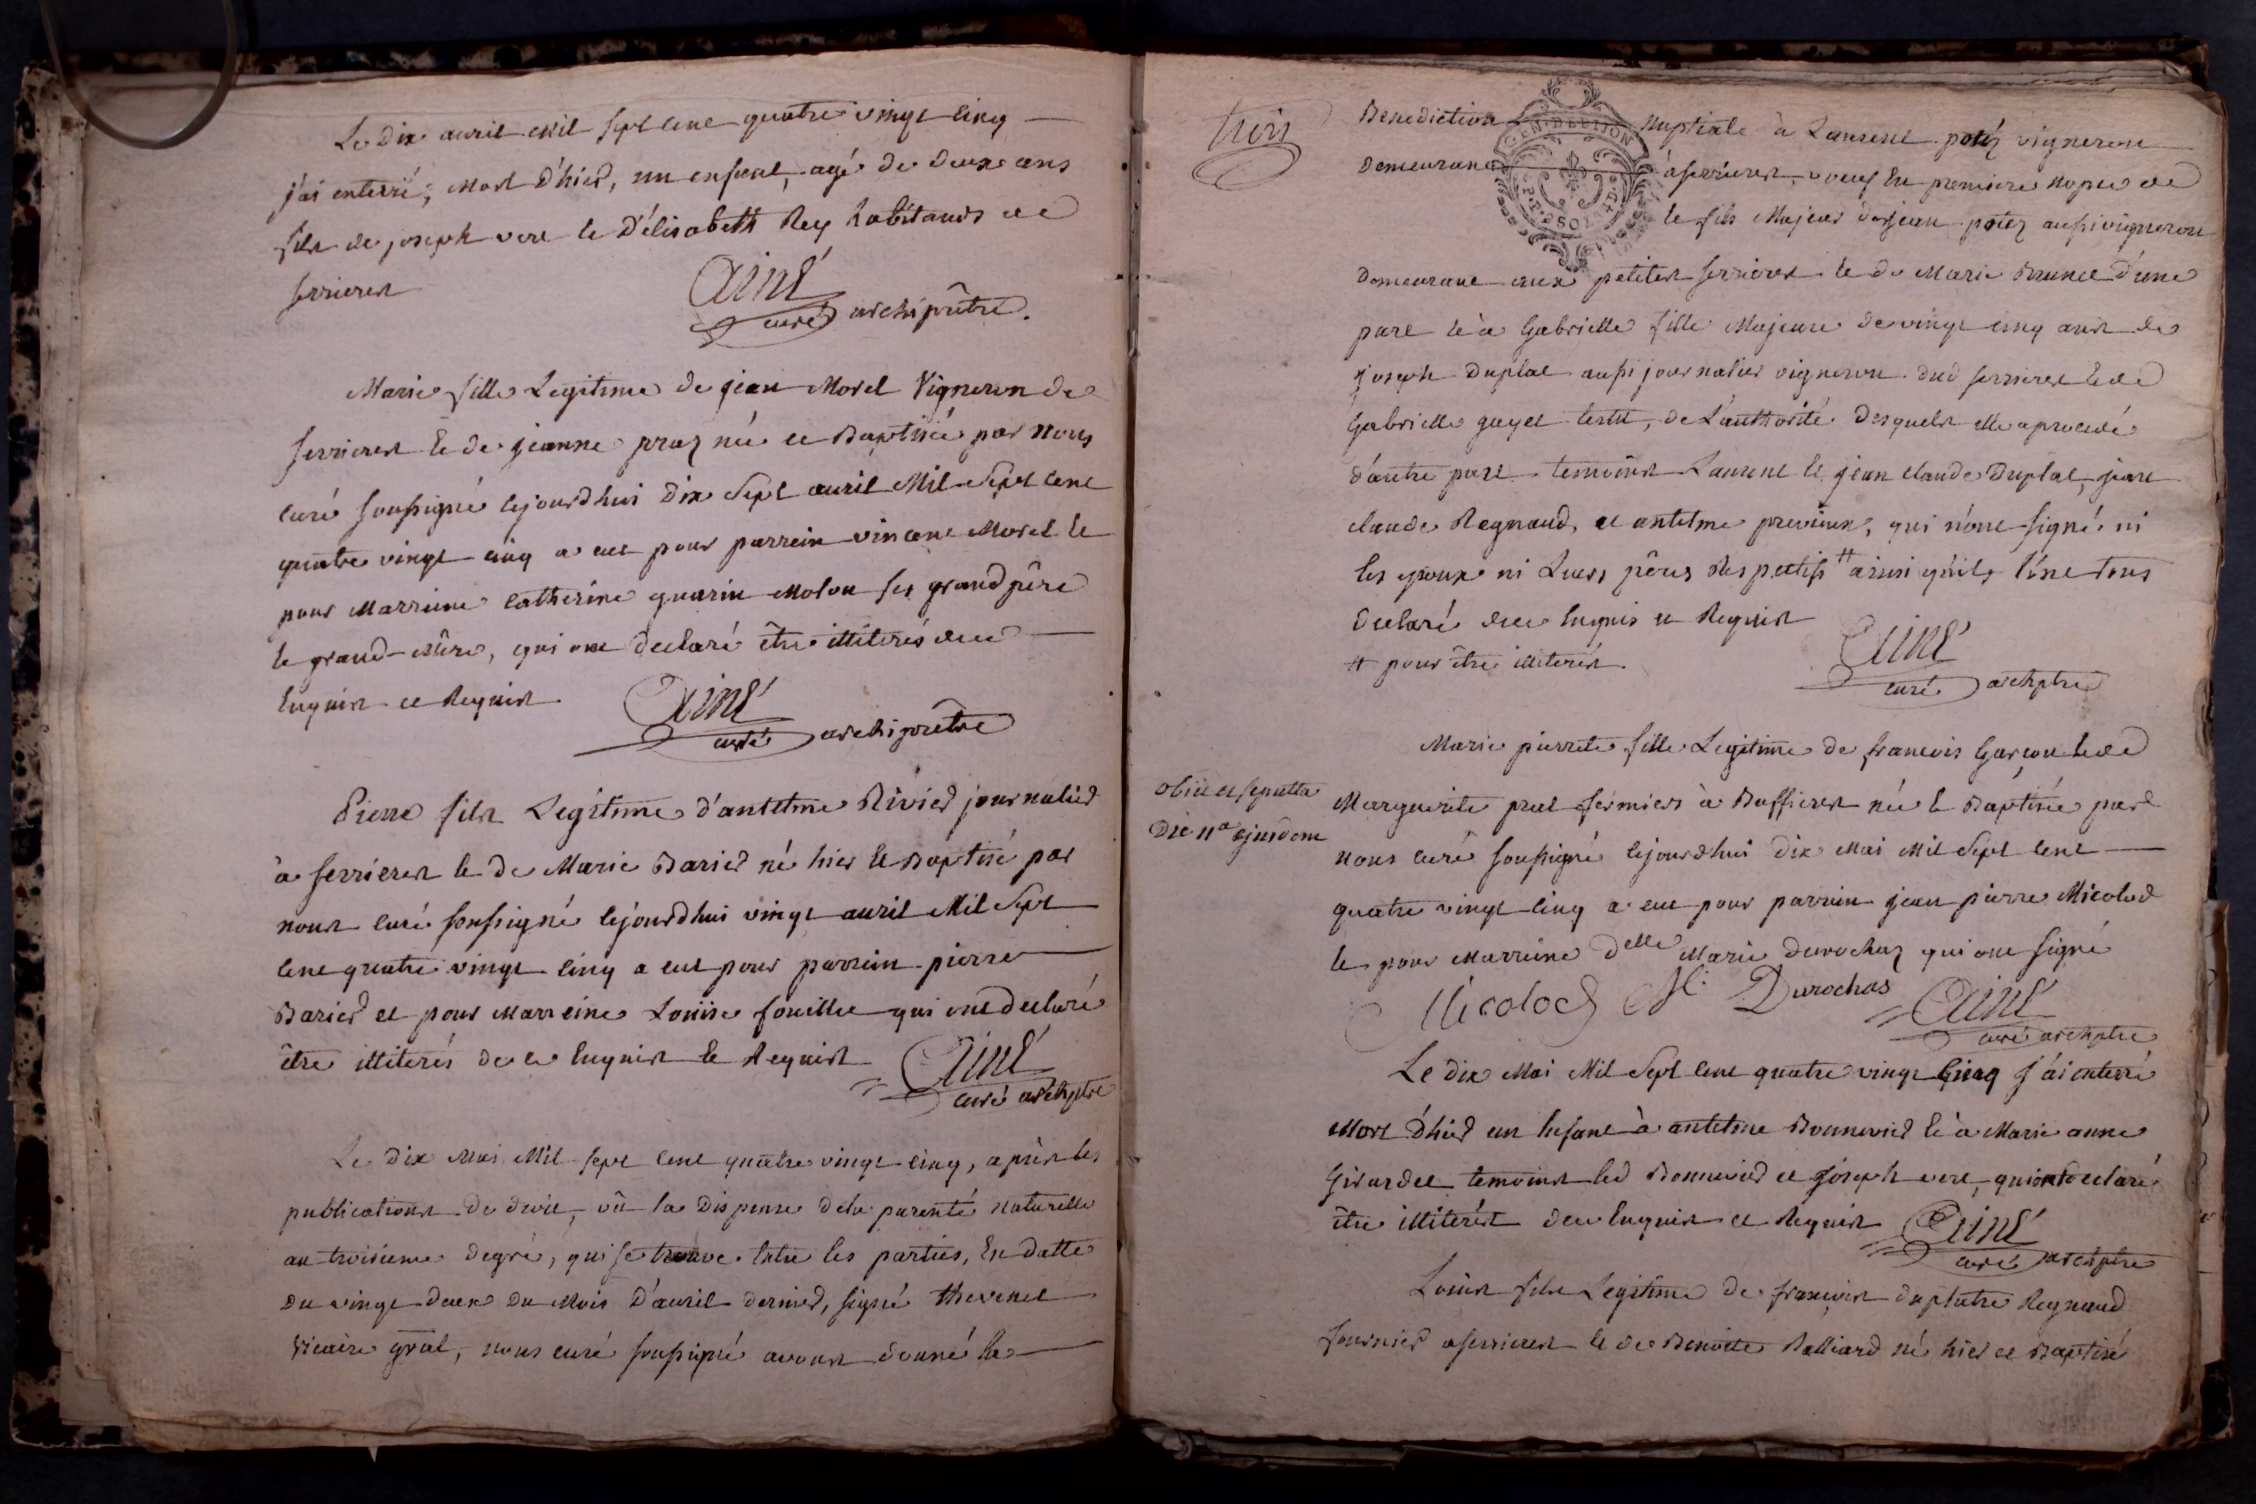 Le dix avril Mil sept cent quatre vingt cinq
j'ai enterré, mort d'hier, un enfant, agé de deux ans
fils de joseph vert et d'élisabeth Rey habitants de
serrieres
Ainé
curé archiprêtre.
Marie fille Legitime de jean Morel Vigneron de
serrieres et de jeanne praz née et Baptisée par nous
curé soussigné cejourdhui dix Sept avril Mil Sept cent
quatre vingt cinq a eut pour parrein vincent Morel et
pour Marreine catherine guerin Molon ses grand pere
et grand-Mère, qui ont declaré être illiterés de ce
Enquis et Requis
Ainé
curé archiprêtre
Pierre fils Legitime d'antelme Rivier journalier
à serrieres et de Marie Barier né hier et Baptisé par
nous curé soussigné cejourdhui vingt avril Mil Sept
cent quatre vingt cinq a eut pour parrein pierre
Barier et pour Marreine Louise fouillet qui ont declaré
être illiterés de ce Enquis et Requis
Ainé
curé archptre
Le dix Mai Mil sept cent quatre vingt cinq, après les
publications de droit, vû la dispense de la parenté naturelle
au troisieme degré, qui se trouve entre les parties, En datte
du vingt deux du Mois d'avril dernier, signé thevenet
vicaire gral, nous curé soussigné avons donné la
trois
Benediction Nuptiale à Laurent potéz vigneron
GEN. DE DIJON
demeurant à serrieres, veuf En premiere Nopce de
P. P. 2 SOLS
le fils Majeur de jean potez aussi vigneron
demeurant aux petites serrieres et de Marie Brunet d'une
part et à Gabrielle fille Majeure de vingt cinq ans de
joseph Duplat aussi journalier vigneron dud serrieres et de
Gabrielle gayet, de L'authorité desquels elle a procedé
d'autre part temoins Laurent et jean claude Duplat, jean
claude Regnaud, et antelme previeux, qui n'ont signé ni
les epoux ni Leurs pères Respectifs # ainsi qu'ils l'ont tous
declaré de ce Enquis et Requis
# pour être illiterés.
Ainé
curé archptre
obiit et sepulta
die 11a ejusdem
Marie pierrette fille Legitime de francois Garçon et de
Marguerite prat fermiers à Buffieres née et Baptisée par
nous curé soussigné cejourdhui dix Mai Mil Sept cent
quatre vingt cinq a eut pour parrein jean pierre Micolod
et pour Marreine Delle Marie durochaz qui ont signé
Micolod M. Durochas Ainé
curé archptre
Le dix Mai Mil Sept cent quatre vingt Cinq j'ai enterré
Mort d'hier un Enfant à antelme Bonnevier et à Marie anne
Girardet temoins led Bonnevier et joseph vert, qui ont declaré
être illiterés de ce Enquis et Requis Ainé
curé archptre
Louis fils Legitime de francois duplatre Regnaud
fournier a serrieres et de Benoite Ralliard né hier et Baptisé